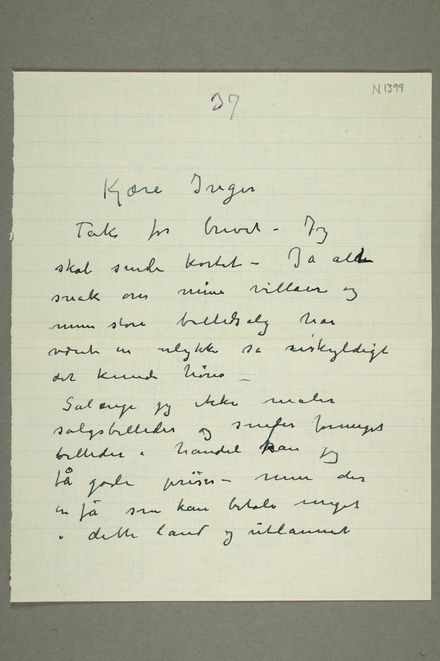 N 1399
37
Kjære Inger
Tak for brevet – Jeg
skal sende kortet – Ja all
snak om mine villaer og
mine store billedsalg har
været en ulykke så uskyldigt
det kunde høres –
Sålænge jeg ikke maler
salgsbilleder og sender formeget
billeder i handel kan jeg
få gode priser – men der
er få som kan betale meget
i dette land og utlannet